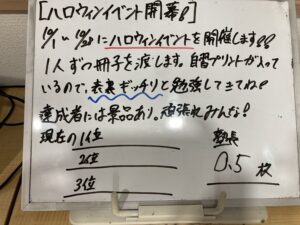 [ハロウィンイベント開幕!]
10/1〜10/28にハロウィンイベントを開催します!!
1人ずつ冊子を渡します。自習プリントが入って
いるので、表裏ギッチリと勉強してきてね?
達成者には景品あり。頑張れみんな!
現在の1位
2位
3位
塾長
0.5枚